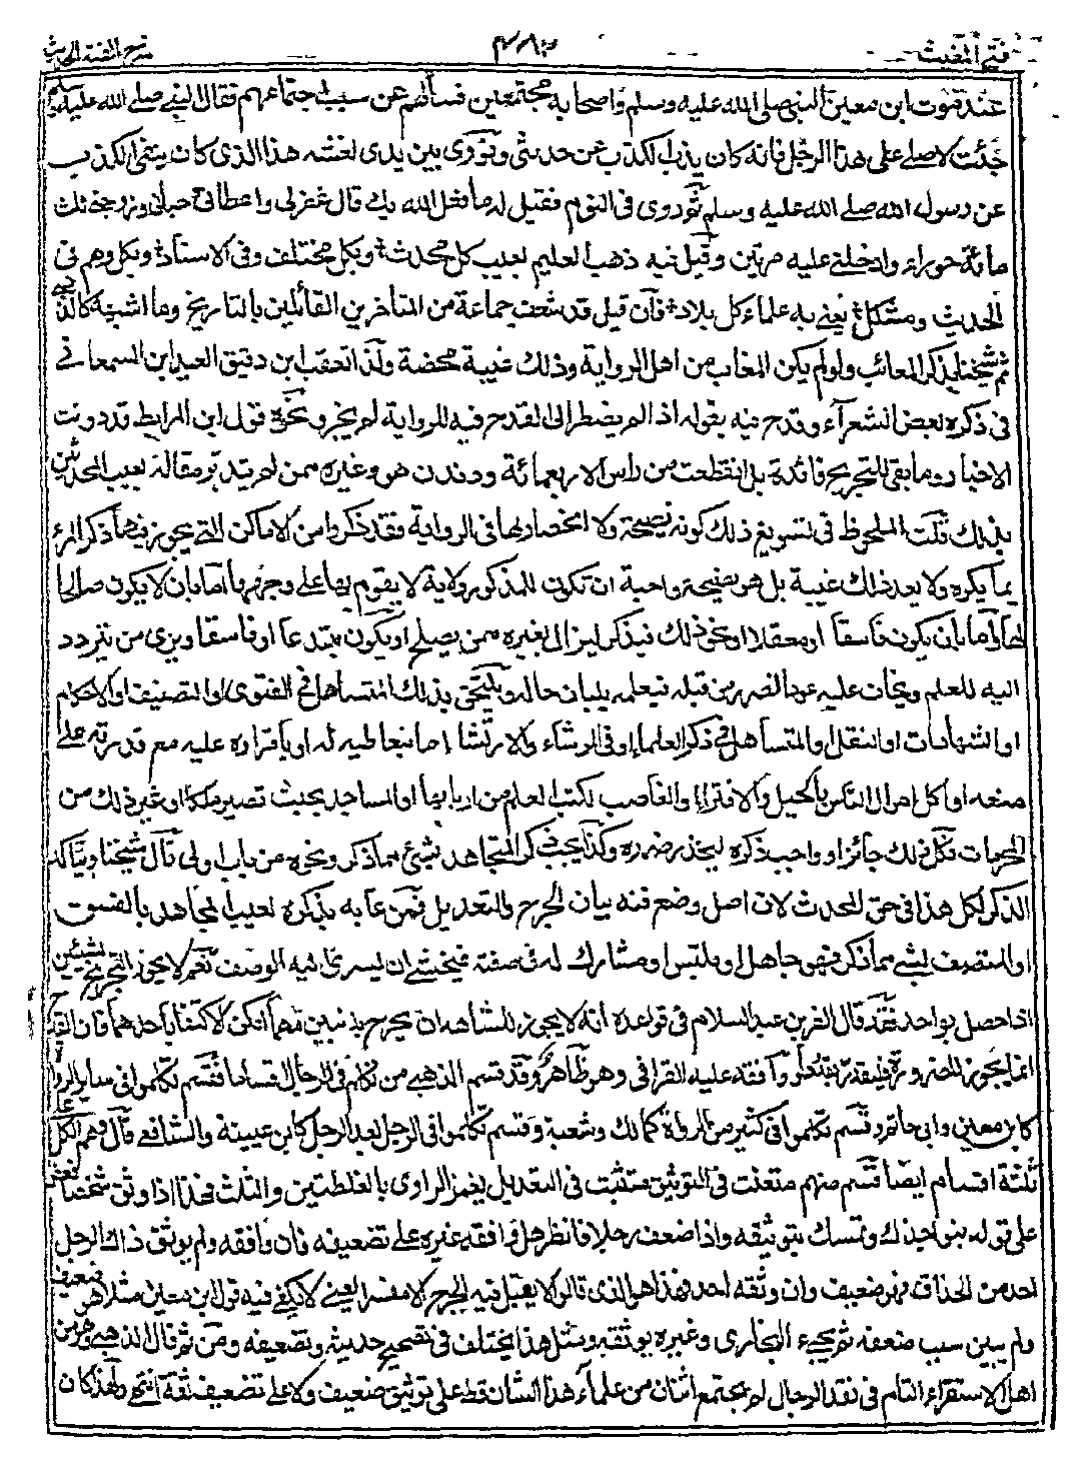 فتح المغيث ٤٨٣ شرح الفية الحديث
عند موت ابن معين النبي صلى الله عليه وسلم واصحابه مجتمعين فسألهم عن سبب اجتماعهم فقال النبي صلى الله عليه وسلم
جئت لاصلي على هذا الرجل فانه كان يذب الكذب عن حديثي ونودي بين يدي نعشه هذا الذي كان ينفي الكذب
عن رسول الله صلى الله عليه وسلم ثم رؤي في النوم فقيل له ما فعل الله بك قال غفر لي واعطاني وحباني وزوجني ثلث
مائة حوراء وادخلني عليه مرتين وقيل فيه ذهب العليم بعيب كل محدث وبكل مختلف وفي الاسناد وبكل وهم في
الحديث ومشكل يعني به علماء كل بلاد فان قيل قد شغف جماعة من المتأخرين القائلين بالتاريخ وما اشبهه كالذهبي
ثم شيخنا بذكر المعائب ولو لم يكن المعاب من اهل الرواية وذلك غيبة محضة ولذا تعقب ابن دقيق العيد ابن السمعاني
في ذكره بعض الشعراء وقدح فيه بقوله اذا لم يضطر الى القدح فيه للرواية لم يجز ونحوه قول ابن المرابط قد دونت
الاخبار وما بقي للتجريح فائدة بل انقطعت من راس الاربعمائة ودندن هو وغيره ممن لم يتدبر مقاله بعيب المحدثين
بذلك قلت الملحوظ في تسويغ ذلك كونه نصيحة ولا انحصار لها في الرواية فقد ذكروا من الاماكن التي يجوز فيها ذكر المرء
بما يكره ولا يعد ذلك غيبة بل هو نصيحة واجبة ان تكون للمذكور ولاية لا يقوم بها على وجهها اما بان لا يكون صالحا
لها واما بان يكون فاسقا او مغفلا او نحو ذلك فيذكر ليزال بغيره ممن يصلح او يكون مبتدعا او فاسقا ويرى من يتردد
اليه للعلم ويخاف عليه عود الضرر من قبله فيعلمه ببيان حاله ويلتحق بذلك المتساهل في الفتوى او التصنيف او الاحكام
او الشهادات او النقل او المتساهل في ذكر العلماء او في الرشاء والارتشا اما بتعاطيه له او باقراره عليه مع قدرته على
منعه او اكل اموال الناس بالحيل والافتراء او الغاصب لكتب العلم من اربابها او المساجد بحيث تصير ملكا او غير ذلك من
المحرمات فكل ذلك جائز او واجب ذكره ليحذر ضرره وكذا يجب ذكر المتجاهر بشيء مما ذكر ونحوه من باب اولى قال شيخنا ويتأكد
الذكر لكل هذا في حق المحدث لان اصل وضع فنه بيان الجرح والتعديل فمن عابه بذكره لعيب المجاهر بالفسق
او المتصف بشيء مما ذكر فهو جاهل او ملتبس او مشارك له في صفته فيخشى ان يسري اليه الوصف نعم لا يجوز التجريح بشيئين
اذا حصل بواحد فقد قال العز بن عبد السلام في قواعده انه لا يجوز للشاهد ان يجرح بذنبين مهما امكن الاكتفاء باحدهما فان القدح
انما يجوز للضرورة فليقدر بقدرها ووافقه عليه القرافي وهو ظاهر وقد قسم الذهبي من تكلم في الرجال اقساما فقسم تكلموا في سائر الرواة
كابن معين وابي حاتم وقسم تكلموا في كثير من الرواة كمالك وشعبة وقسم تكلموا في الرجل بعد الرجل كابن عيينة والشافعي قال وهم الكل على
ثلثة اقسام ايضا قسم منهم متعنت في التوثيق متثبت في التعديل يغمز الراوي بالغلطتين والثلث فهذا اذا وثق شخصا فعض
على قوله بنواجذك وتمسك بتوثيقه واذا ضعف رجلا فانظر هل وافقه غيره على تضعيفه فان وافقه ولم يوثق ذاك الرجل
احد من الحذاق فهو ضعيف وان وثقه احد فهذا هو الذي قالوا لا يقبل فيه الجرح الا مفسرا يعني لا يكفي فيه قول ابن معين مثلا هو ضعيف
ولم يبين سبب ضعفه ثم يجيء البخاري وغيره يوثقه ومثل هذا يختلف في تصحيح حديثه وتضعيفه ومن ثم قال الذهبي وهو من
اهل الاستقراء التام في نقد الرجال لم يجتمع اثنان من علماء هذا الشان قط على توثيق ضعيف ولا على تضعيف ثقة انتهى ولهذا كان